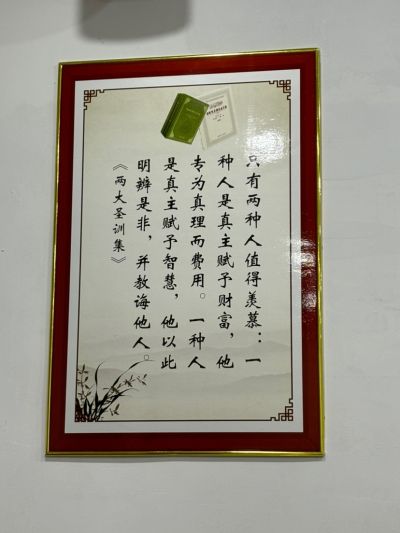 只有两种人值得羡慕：一
种人是真主赋予财富，他
专为真理而费用。一种人
是真主赋予智慧，他以此
明辨是非，并教诲他人。
《两大圣训集》